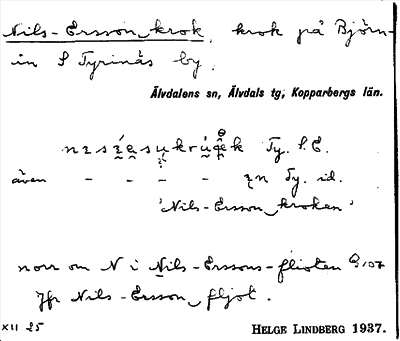 Nils-Ersson krok, krok på Björn-
ön S Tyrinäs by.
Älvdalens sn, Älvdals tg, Kopparbergs län.
Ty. S.E.
även – – – – Ty. id.
'Nils-Ersson kroken'
norr om N i Nils-Erssons-flöten
Jfr Nils-Ersson fljot.
XII 25
HELGE LINDBERG 1937.